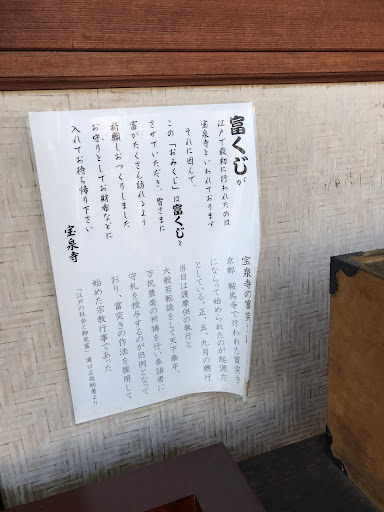 富くじが
江戸で最初に行われたのは
宝泉寺といわれております
それに因んで、
この「おみくじ」は富くじと
させていただき、皆さまに
富がたくさん訪れるよう
祈願しおつくりしました
お守りとしてお財布などに
入れてお持ち帰り下さい
宝泉寺
宝泉寺の富突
京都 鞍馬寺で行われた富突き
にならって始められたのが起源だ
としている。正、五、九月の興行
当日は護摩供の執行と
大般若転読をして天下泰平、
万民豊楽の祈祷を行い参詣者に
守札を授与するのが旧例となって
おり、富突きの作法を援用して
始めた宗教行事であった
「江戸の社会と御免富」滝口正哉師著より